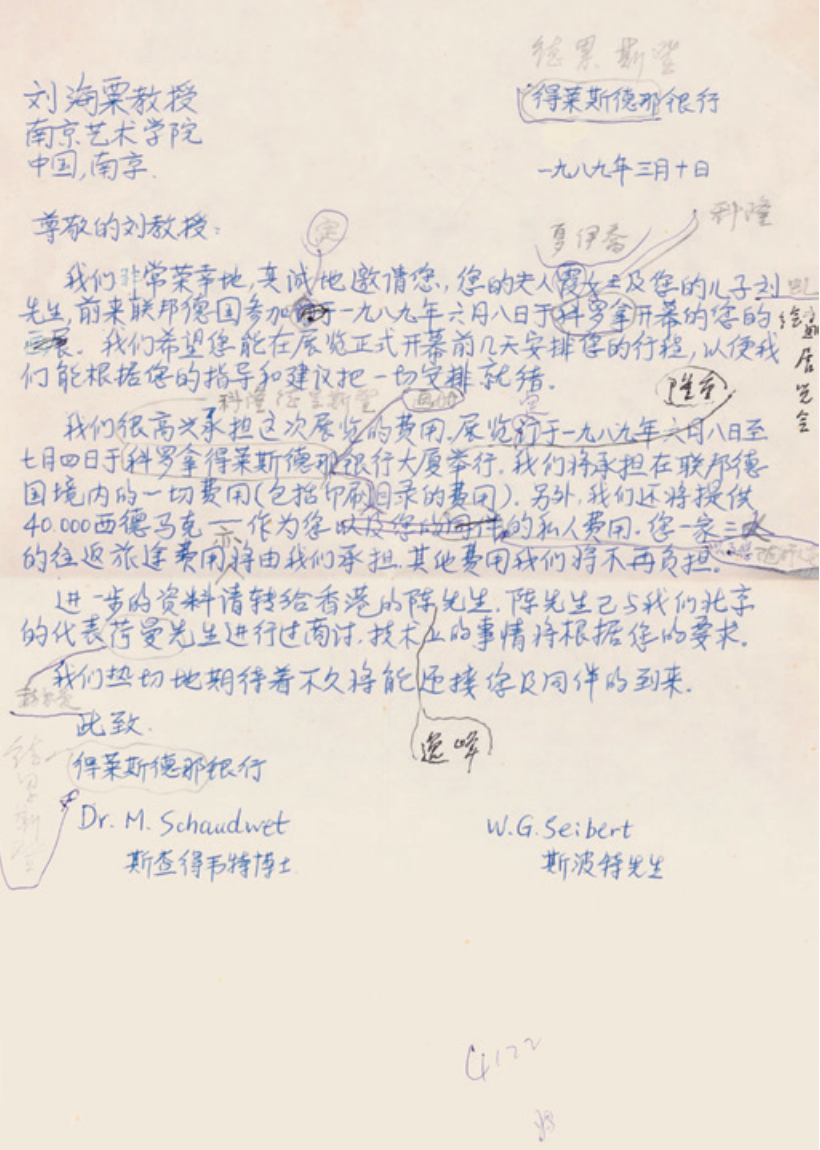 德累斯登
刘海粟教授
得莱斯德那银行
南京艺术学院
中国,南京.
一九八九年三月十日
尊敬的刘教授:
定
夏伊乔
科隆
我们非常荣幸地,真诚地邀请您,您的夫人霞女士及您的儿子刘
先生,前来联邦德国参加于一九八九年六月八日于科罗拿开幕的您的
画展。我们希望您能在展览正式开幕前几天安排您的行程,以便我
们能根据您的指导和建议把一切安排就绪.
科隆德累斯登
画册
定
隆重
我们很高兴承担这次展览的费用.展览行于一九八九年六月八日至
七月四日于科罗拿得莱斯德那银行大厦举行.我们将承担在联邦德
国境内的一切费用(包括印刷目录的费用).另外,我们还将提供
40.000西德马克——作为您以及您的同伴的私人费用.您一家三人
的往返旅途费用将由我们承担.其他费用我们将不再负担.
进一步的资料请转给香港的陈先生.陈先生已与我们北京
的代表荷曼先生进行过商讨.技术上的事情将根据您的要求.
我们热切地期待着不久将能迎接您及同伴的到来.
此致.
逸峰
得莱斯德那银行
Dr. M. Schaudwet
W.G. Seibert
斯查得韦特博士
斯波特先生